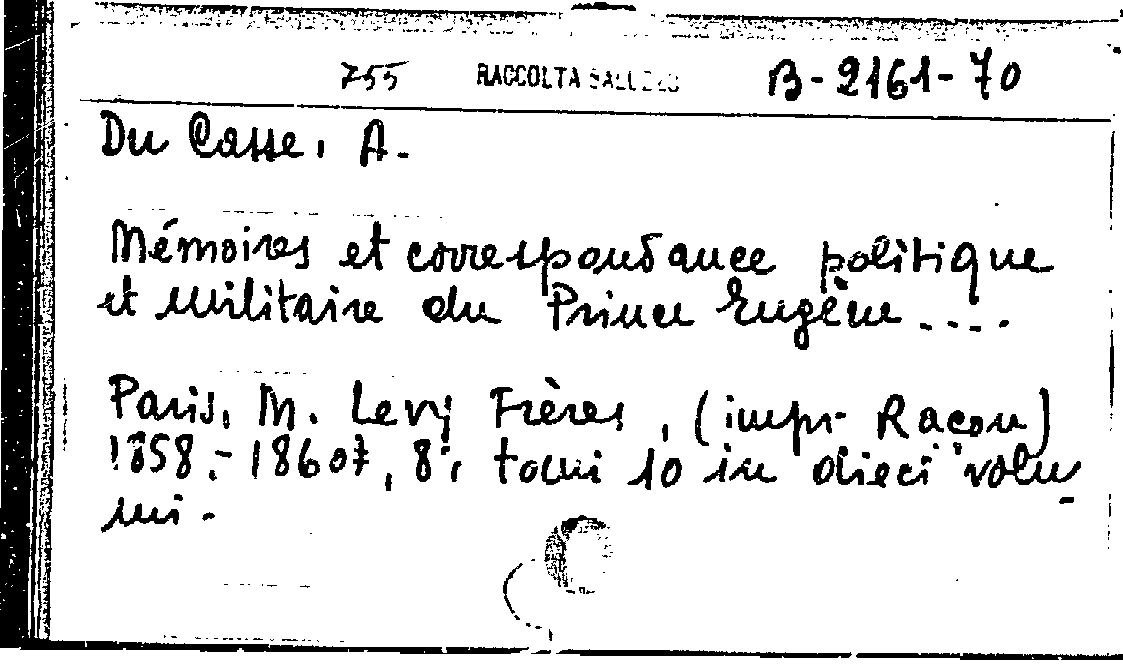 755 RACCOLTA SALUZZO B-2161-70
Du Casse, A.
Mémoires et correspondance politique
et militaire du Prince Eugène....
Paris, M. Levy Frères, (impr. Raçon)
1858.-1860, 8°, tomi 10 in dieci volu-
mi.